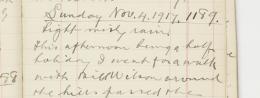 Sunday Nov. 4. 1917. 1189.
Light misty rain.
This afternoon being a half
holiday I went for a walk
with Bill Wilson around
the hills passed the